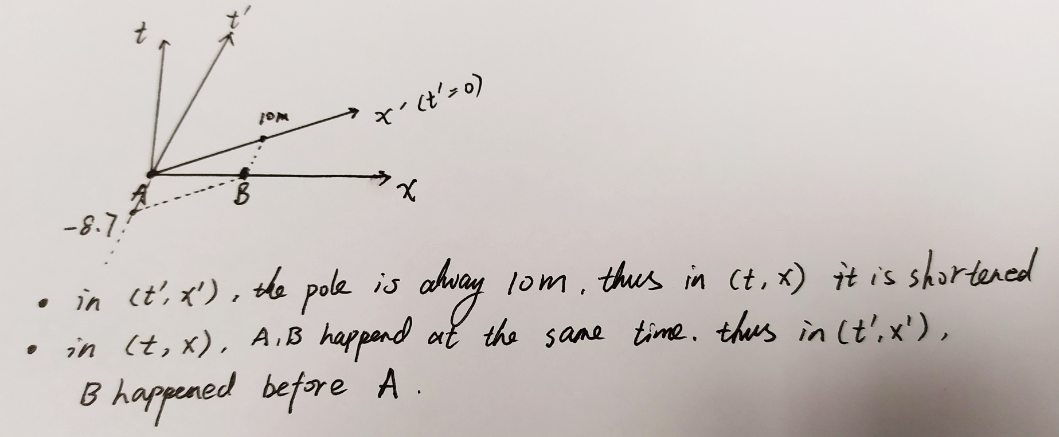 t t'
10m x' (t'=0)
A B x
-8.7
• in (t', x'), the pole is alway 10m, thus in (t, x) it is shortened
• in (t, x), A, B happend at the same time. thus in (t', x'),
B happened before A.